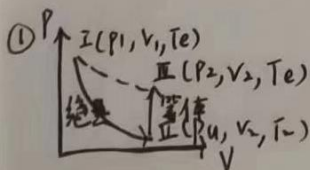 ① P
I(P1, V₁, Te)
III(P2, V₂, Te)
绝热
等体
II(P, V₂, T₂)
V